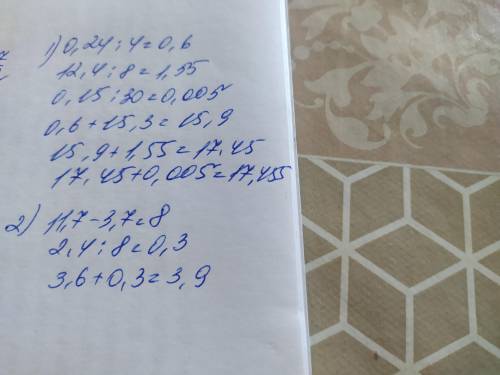 1) 0,24 : 4 = 0,6
12,4 : 8 = 1,55
0,15 : 30 = 0,005
0,6 + 15,3 = 15,9
15,9 + 1,55 = 17,45
17,45 + 0,005 = 17,455
2) 11,7 - 3,7 = 8
2,4 : 8 = 0,3
3,6 + 0,3 = 3,9